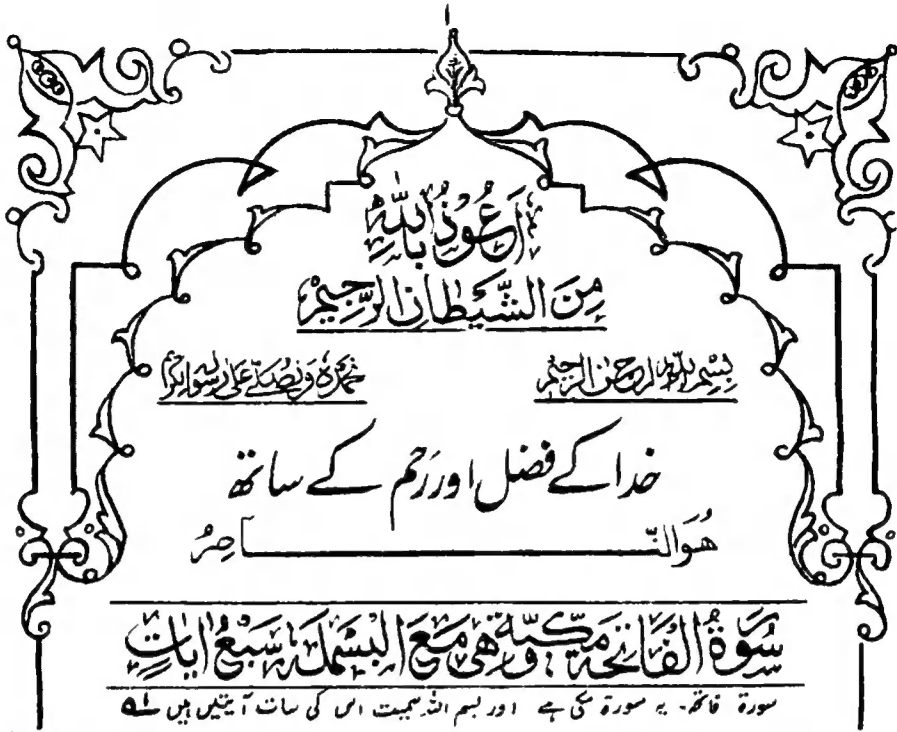 اَعُوْذُ بِاللّٰهِ
مِنَ الشَّيْطَانِ الرَّجِيْمِ
بِسْمِ اللّٰهِ الرَّحْمٰنِ الرَّحِيْمِ
نَحْمَدُهٗ وَنُصَلِّيْ عَلٰى رَسُوْلِهِ الْكَرِيْمِ
خدا کے فضل اور رَحم کے ساتھ
هُوَ النَّــــــاصِرُ
سُوْرَةُ الْفَاتِحَةِ مَكِّيَّةٌ وَّهِيَ مَعَ الْبَسْمَلَةِ سَبْعُ اٰيَاتٍ
سورۃ فاتحہ۔ یہ سورۃ مکی ہے اور بسم اللہ سمیت اس کی سات آیتیں ہیں